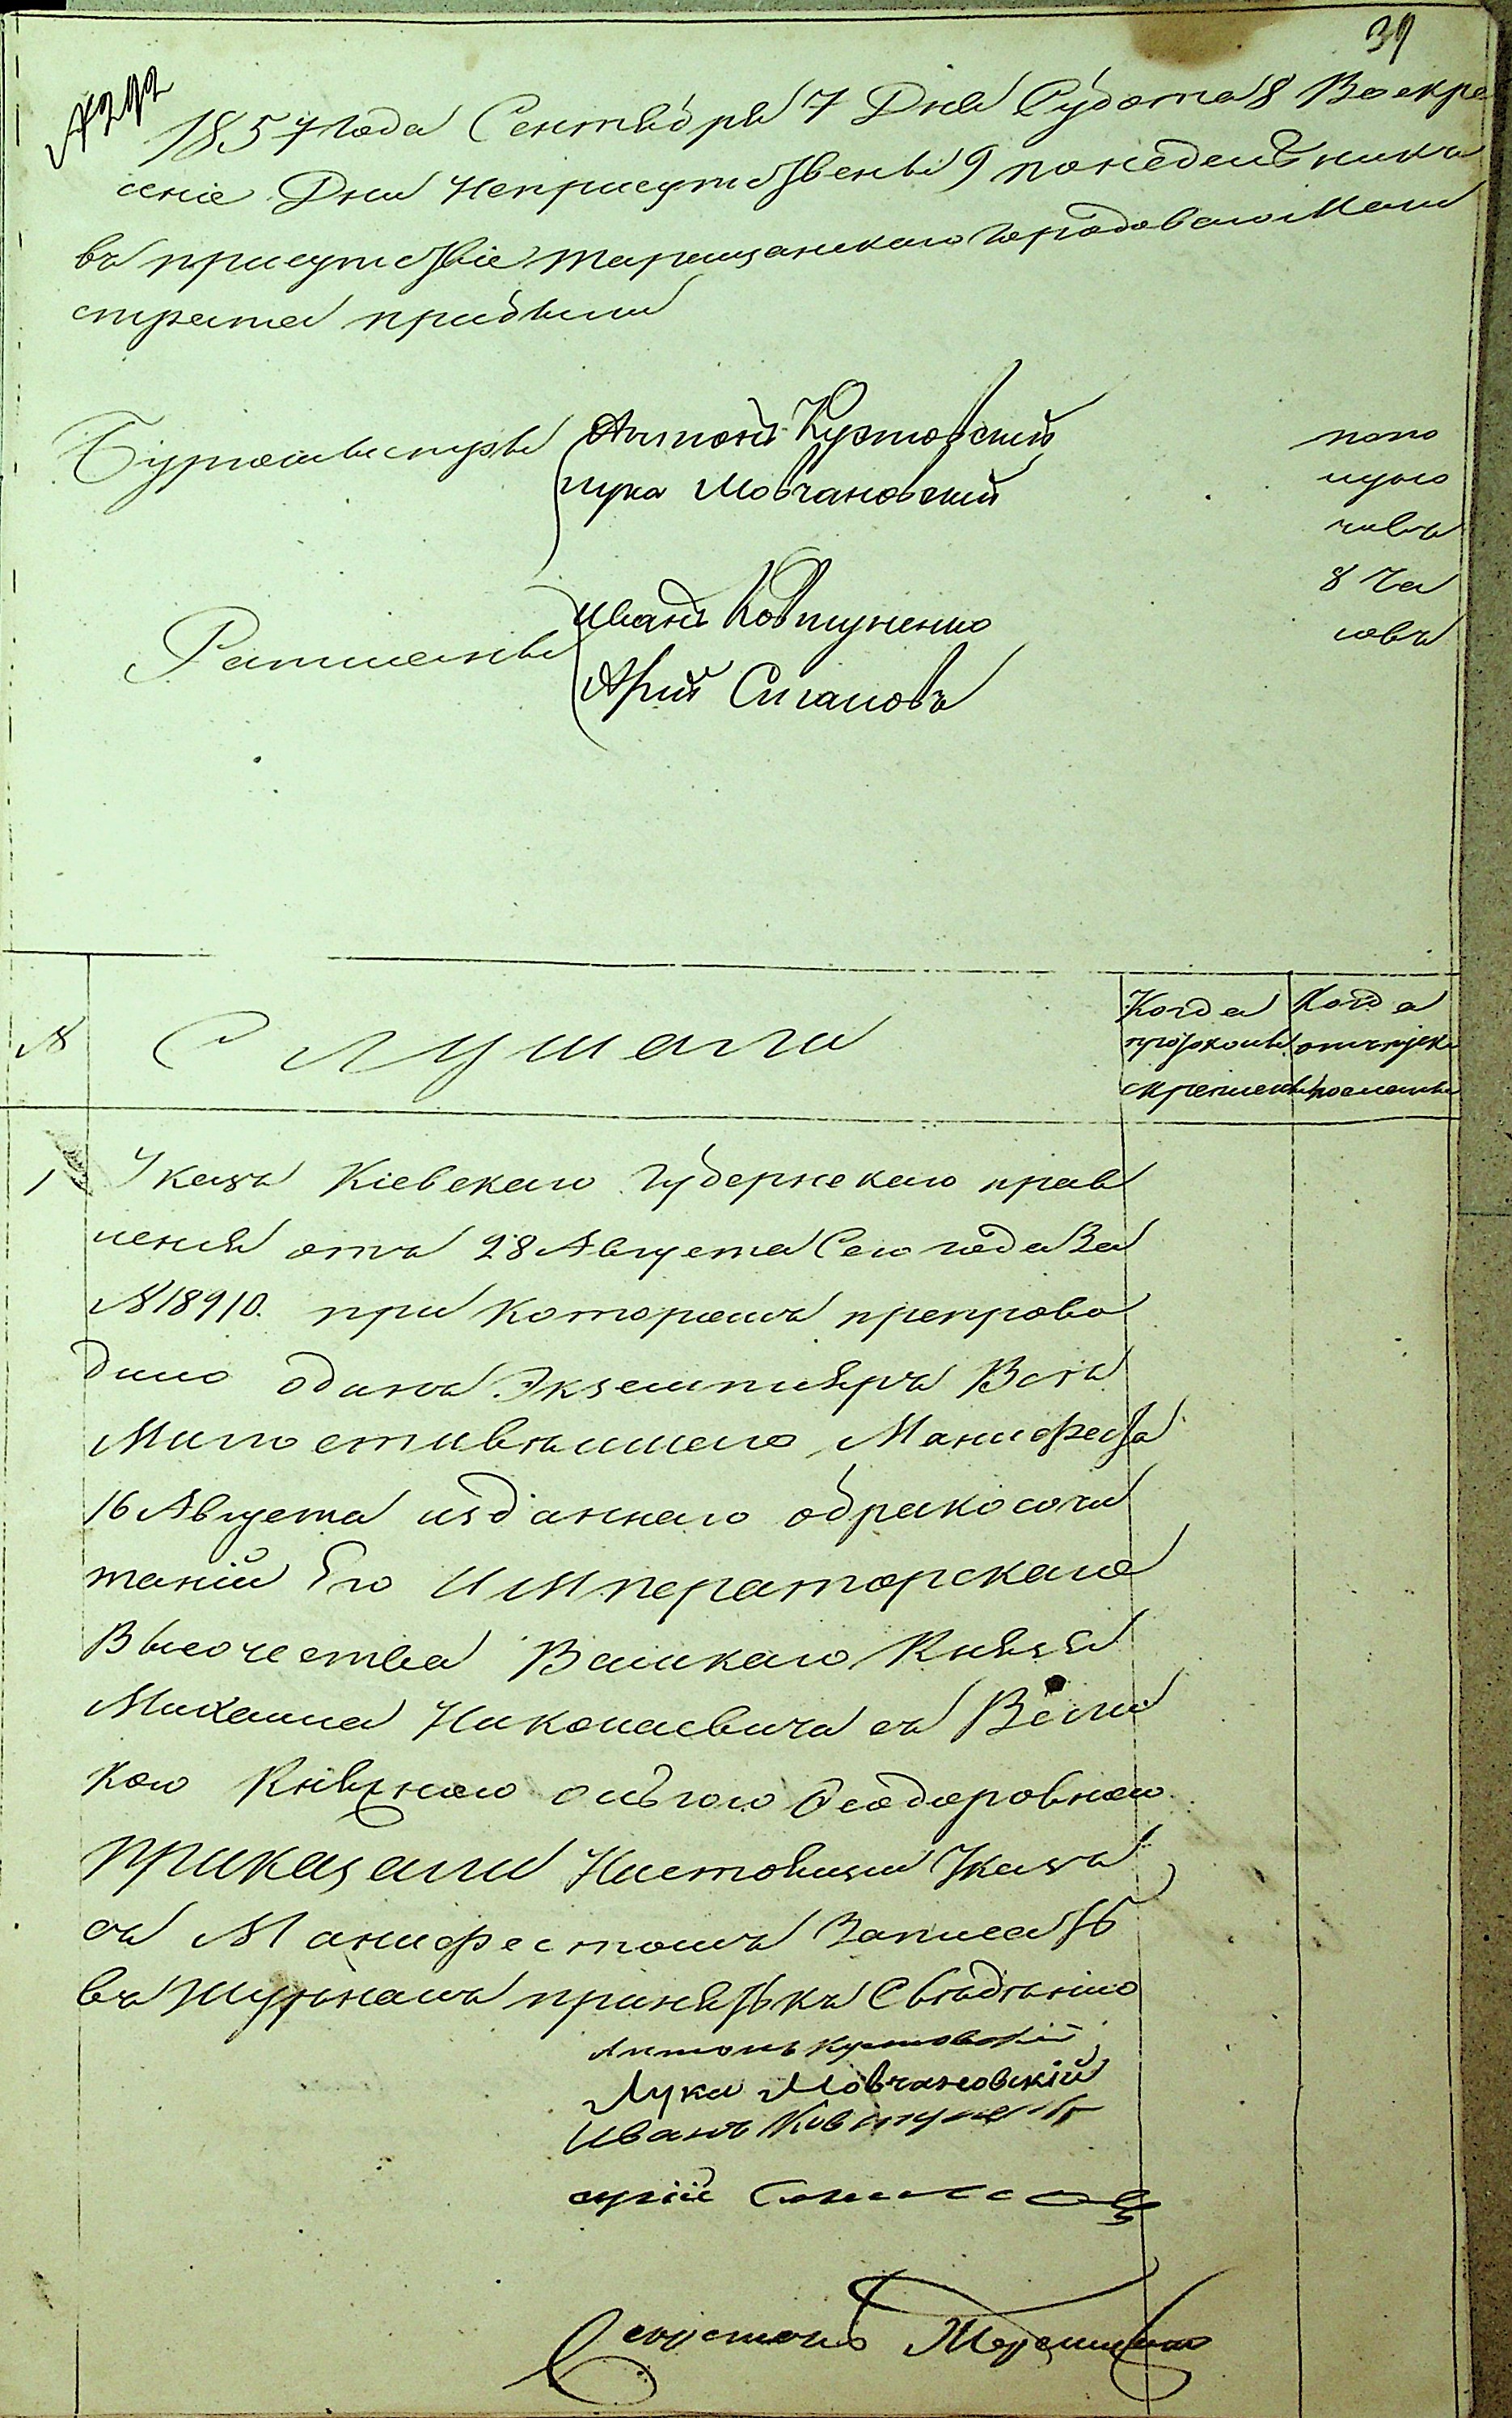 39
№ 292
1857 года Сентября 7 Дня Субота 8 Воскре
сеніе Дни Неприсутственны 9 понедельникъ
въ присутствіе таращанскаго городоваго Маги
страта прибыли
Бургомистры Антонъ Кустовский
Лука Мовчановский
по по
луно
чивъ
8 ча
совъ
Ратманы Иванъ Ковтуненко
Арий Сигаловъ
№ Слушали
Когда протоколъ
Когда
1 Указъ Кіевскаго Губернскаго прав
ленія отъ 28 Августа Сего года За
№ 18910. при которомъ препрово
дило одинъ Экземпляръ Все
Милостивѣйшаго Манифеста
16 Августа изданнаго обракосоче
таніи Его Императорскаго
Высочества Великаго Князя
Михаила Николаевича съ Вели
кою Княжною Ольгою Ѳеодоровною
приказали Настоящій Указъ
съ Манифестомъ Записать
въ Журналъ принять къ Сведѣнію
Антонъ Кустовскій
Лука Мовчановскій
Иванъ Ковтуненко